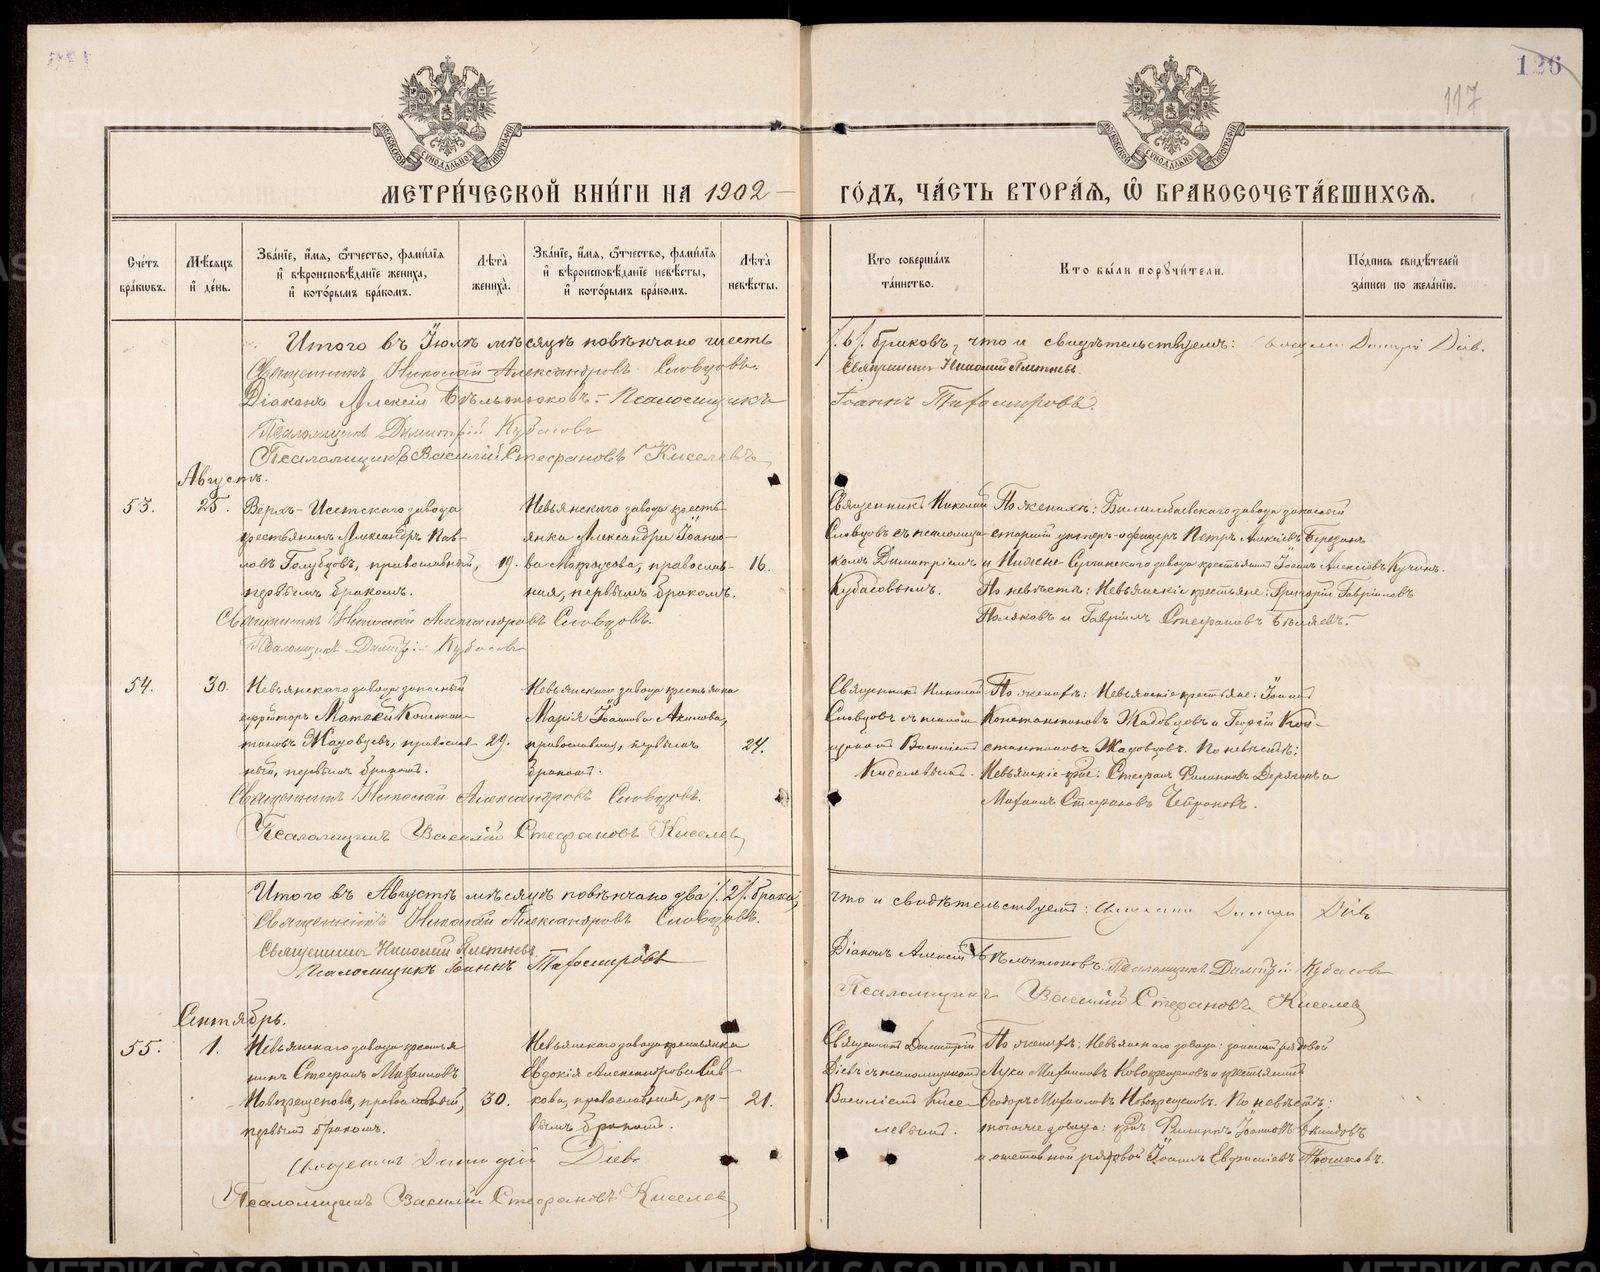 126
117
МЕТРИ́ЧЕСКОЙ КНИ́ГИ НА 1902 ГО́ДЪ, ЧА́СТЬ ВТОРА́Я, Ѽ БРАКОСОЧЕТА́ВШИХСЯ.
Сче́тъ бра́ковъ.
Мѣ́сяцъ и҆ де́нь.
Зва́нїе, и҆́мя, ѻ҆́тчество, фами́лїя и҆ вѣроисповѣ́данїе жениха̀, и҆ кото́рымъ бра́комъ.
Лѣ́та жениха̀.
Зва́нїе, и҆́мя, ѻ҆́тчество, фами́лїя и҆ вѣроисповѣ́данїе невѣ́сты, и҆ кото́рымъ бра́комъ.
Лѣ́та невѣ́сты.
Кто̀ соверша́лъ та́инство.
Кто̀ бы́ли порꙋчи́тели.
По́дпись свидѣ́телей за́писи по жела́нїю.
Итого въ Іюлѣ мѣсяцѣ повѣнчано шесть /.6/. браковъ, что и свидѣтельствуемъ: Священникъ Димитрій Діевъ.
Священникъ Николай Александровъ Словцовъ. Священникъ Николай Плетневъ.
Діаконъ Алексій Бѣльтюковъ. – Псаломщикъ Іоаннъ Тихомировъ.
Псаломщикъ Димитрій Кубасовъ
Псаломщикъ Василій Стефановъ Киселевъ
Августъ.
53. 25.
Верхъ-Исетскаго завода
крестьянинъ Александръ Пав-
ловъ Голубцовъ, православный, 19.
первымъ бракомъ.
Невьянскаго завода кресть-
янка Александра Іоанно-
ва, правосла- 16.
ная, первымъ бракомъ.
Священникъ Николай
Словцовъ съ псаломщи-
комъ Димитріемъ
Кубасовымъ.
По женихѣ: Билимбаевскаго завода запасный
старшій унтеръ-офицеръ Петръ Алексѣевъ
и Нижне-Сергинскаго завода крестьянинъ Іоаннъ Алексѣевъ
По невѣстѣ: Невьянскіе крестьяне: Григорій Гавріиловъ
Поляковъ и Гавріилъ Стефановъ Бѣляевъ.
Священникъ Николай Александровъ Словцовъ.
Псаломщикъ Димитр: Кубасовъ
54. 30.
Невьянскаго завода запасный
ефрейторъ Матѳей Констан-
тиновъ, православ- 29.
ный, первымъ бракомъ.
Невьянскаго завода крестьянка
Марія Іоаннова Акилова,
православная, первымъ 24.
бракомъ.
Священникъ Николай
Словцовъ съ псалом-
щикомъ Василіемъ
Киселевымъ.
По женихѣ: Невьянскіе крестьяне: Іоаннъ
Константиновъ и Георгій Кон-
стантиновъ. По невѣстѣ:
Невьянскіе кр-не: Стефанъ Филипповъ Дерягинъ и
Михаилъ Стефановъ
Священникъ Николай Александровъ Словцовъ.
Псаломщикъ Василій Стефановъ Киселевъ
Итого въ Августѣ мѣсяцѣ повѣнчано два /.2/. брака, что и свидѣтельствуемъ: Священникъ Димитрій Діевъ
Священникъ Николай Александровъ Словцовъ.
Священникъ Николай Плетневъ. Діаконъ Алексій Бѣльтюковъ. Псаломщикъ Димитрій Кубасовъ
Псаломщикъ Іоаннъ Тихомировъ
Псаломщикъ Василій Стефановъ Киселевъ
Сентябрь.
55. 1.
Невьянскаго завода крестья-
нинъ Стефанъ Михаиловъ
Новокрещеновъ, православный, 30.
первымъ бракомъ.
Невьянскаго завода крестьянка
Евдокія Александрова Сив-
кова, православная, пер- 21.
вымъ бракомъ.
Священникъ Димитрій
Діевъ съ псаломщикомъ
Василіемъ Кисе-
левымъ.
По женихѣ: Невьянскаго завода: запасный рядовой
Лука Михаиловъ Новокрещеновъ и крестьянинъ
Ѳеодоръ Михаиловъ Новокрещеновъ. По невѣстѣ:
того же завода: кр-нъ Филиппъ Іоанновъ
и отставной рядовой Іоаннъ
Священникъ Димитрій Діевъ
Псаломщикъ Василій Стефановъ Киселевъ
METRIKI.GASO-URAL.RU